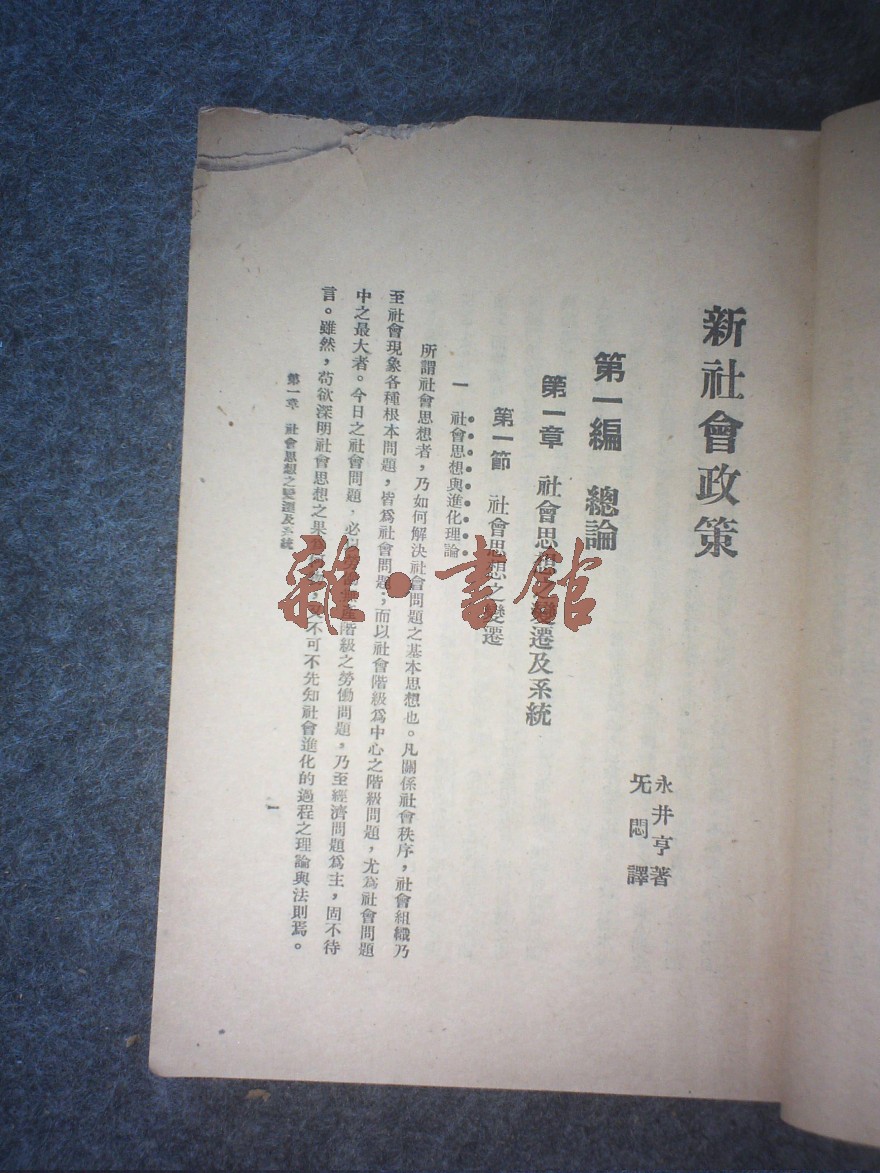 新社會政策
永井亨著
旡悶譯
第一編 總論
第一章 社會思想之變遷及系統
第一節 社會思想之變遷
一 社會思想與進化理論
所謂社會思想者,乃如何解決社會問題之基本思想也。凡關係社會秩序,社會組織乃
至社會現象各種根本問題,皆為社會問題;而以社會階級為中心之階級問題,尤為社會問題
中之最大者。今日之社會問題,必以 階級之勞働問題,乃至經濟問題為主,固不待
言。雖然,苟欲深明社會思想之果 ,又不可不先知社會進化的過程之理論與法則焉。
第一章 社會思想之變遷及系統
一
雜·書館